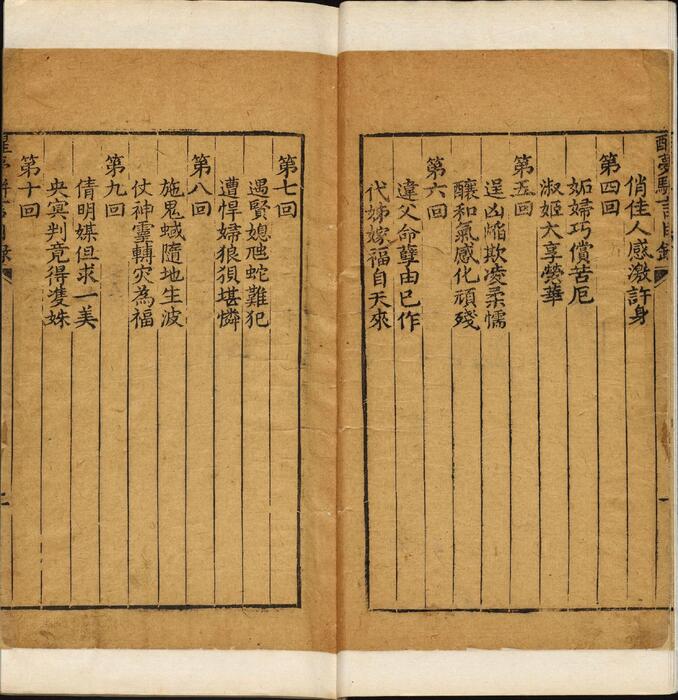 醒夢駢言目錄
一
俏佳人感激許身
第四回
妬婦巧償苦厄
淑姬大享榮華
第五回
逞凶焰欺凌柔懦
釀和氣感化頑殘
第六回
違父命孽由已作
代姊嫁福自天來
第七回
遇賢媳虺蛇難犯
遭悍婦狼狽堪憐
第八回
施鬼蜮隨地生波
仗神靈轉灾為福
第九回
倩明媒但求一美
央冥判竟得雙姝
第十回
醒夢駢言目錄
二